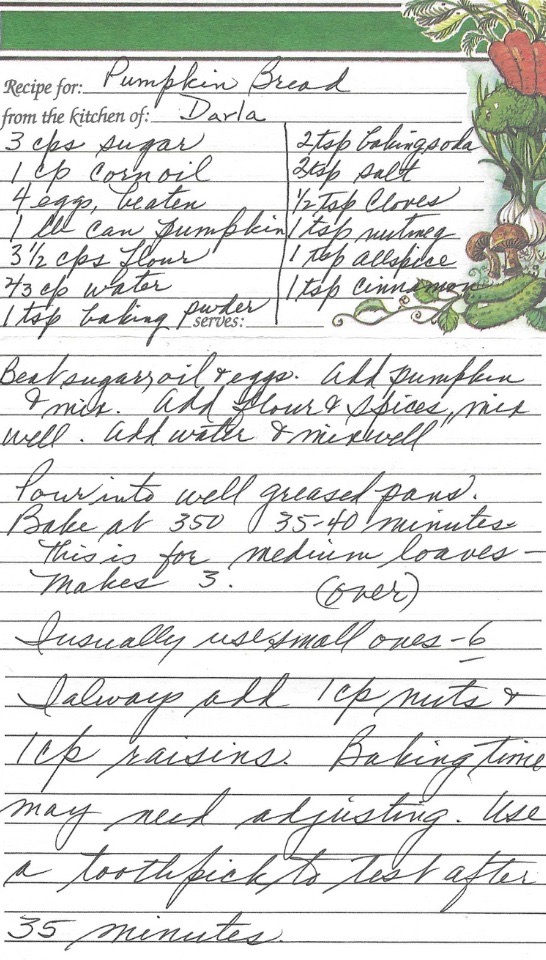 Recipe for: Pumpkin Bread
from the kitchen of: Darla
3 cps sugar
1 cp corn oil
4 eggs, beaten
1 lb can pumpkin
3 1/2 cps flour
2/3 cp water
1 tsp baking pwder
serves:
2 tsp baking soda
2 tsp salt
1/2 tsp Cloves
1 tsp nutmeg
1 tsp allspice
1 tsp cinnamon
Beat sugar, oil & eggs. Add pumpkin
& mix. Add flour & spices, mix
well. Add water & mix well
Pour into well greased pans.
Bake at 350 35-40 minutes.
This is for medium loaves -
Makes 3. (over)
I usually use small ones - 6
I always add 1 cp nuts &
1 cp raisins. Baking time
may need adjusting. Use
a toothpick to test after
35 minutes.